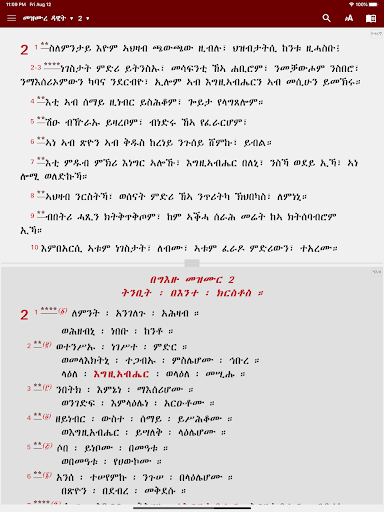 11:09 PM Fri Aug 12
100%
መዝሙረ ዳዊት ▾ 2 ▾
2 1 **ስለምንታይ እዮም አህዛብ ጫውጫው ዚብሉ፡ ህዝብታትሲ ከንቱ ዚሓስቡ፧
2-3 ****ነገስታት ምድሪ ይትንስኡ፡ መሳፍንቲ ኸኣ ሐቢሮም፡ ንመቓውሖም ንስበሮ፡
ንማእሰሪኦምውን ካባና ንደርብዮ፡ ኢሎም ኣብ እግዚኣብሔርን ኣብ መሲሁን ይመኽሩ።
4 **እቲ ኣብ ሰማይ ዚነብር ይስሕቖም፡ ጐይታ የላግጸሎም።
5 **ሽዑ ብዅራኡ ይዛረቦም፡ ብነድሩ ኸኣ የፈራርሆም፡
6 **ኣነ ኣብ ጽዮን ኣብ ቅዱስ ከረነይ ንጉሰይ ሸምኩ፡ ይብል።
7 **እቲ ምዱብ ምኽሪ እነግር ኣሎኹ፡ እግዚኣብሔር በለኒ፡ ንስኻ ወደይ ኢኻ፡ ኣነ
ሎሚ ወለድኩኻ።
8 **ኣህዛብ ንርስትኻ፡ ወሰናት ምድሪ ኸኣ ንጥሪትካ ኽህበካስ፡ ለምነኒ።
9 **ብበትሪ ሓጺን ክትቅጥቅጦም፡ ከም ኣቕሓ ሰራሕ መሬት ከኣ ክትሰባብሮም
ኢኻ።
10 እምበኣርሲ ኣቱም ነገስታት፡ ለብሙ፡ ኣቱም ፈራዶ ምድሪውን፡ ተአረሙ።
በግእዙ መዝሙር 2
ትንቢት ፡ በእንተ ፡ ክርስቶስ ።
2 1 ለምንት ፡ አንገለጉ ፡ አሕዛብ ፡
ወሕዘብኒ ፡ ነበቡ ፡ ከንቶ ።
2 ወተንሥኡ ፡ ነገሥተ ፡ ምድር ፡
ወመላእክትኒ ፡ ተጋብኡ ፡ ምስሌሆሙ ፡ ኅቡረ ።
ላዕለ ፡ እግዚአብሔር ፡ ወላዕለ ፡ መሲሑ ።
3 ንበትክ ፡ እምኔነ ፡ ማእሰሪሆሙ ።
ወንገድፍ ፡ እምላዕሌነ ፡ አርዑቶሙ ።
4 ዘይነብር ፡ ውስተ ፡ ሰማይ ፡ ይሥሕቆሙ ።
ወእግዚአብሔር ፡ ይሣለቅ ፡ ላዕሌሆሙ ።
5 ሶበ ፡ ይነቦሙ ፡ በመዓቱ ።
ወበመዓቱ ፡ የሀውኮሙ ።
6 አንሰ ፡ ተሠየምኩ ፡ ንጉሠ ፡ በላዕሌሆሙ ።
በጽዮን ፡ በደብረ ፡ መቅደሱ ።